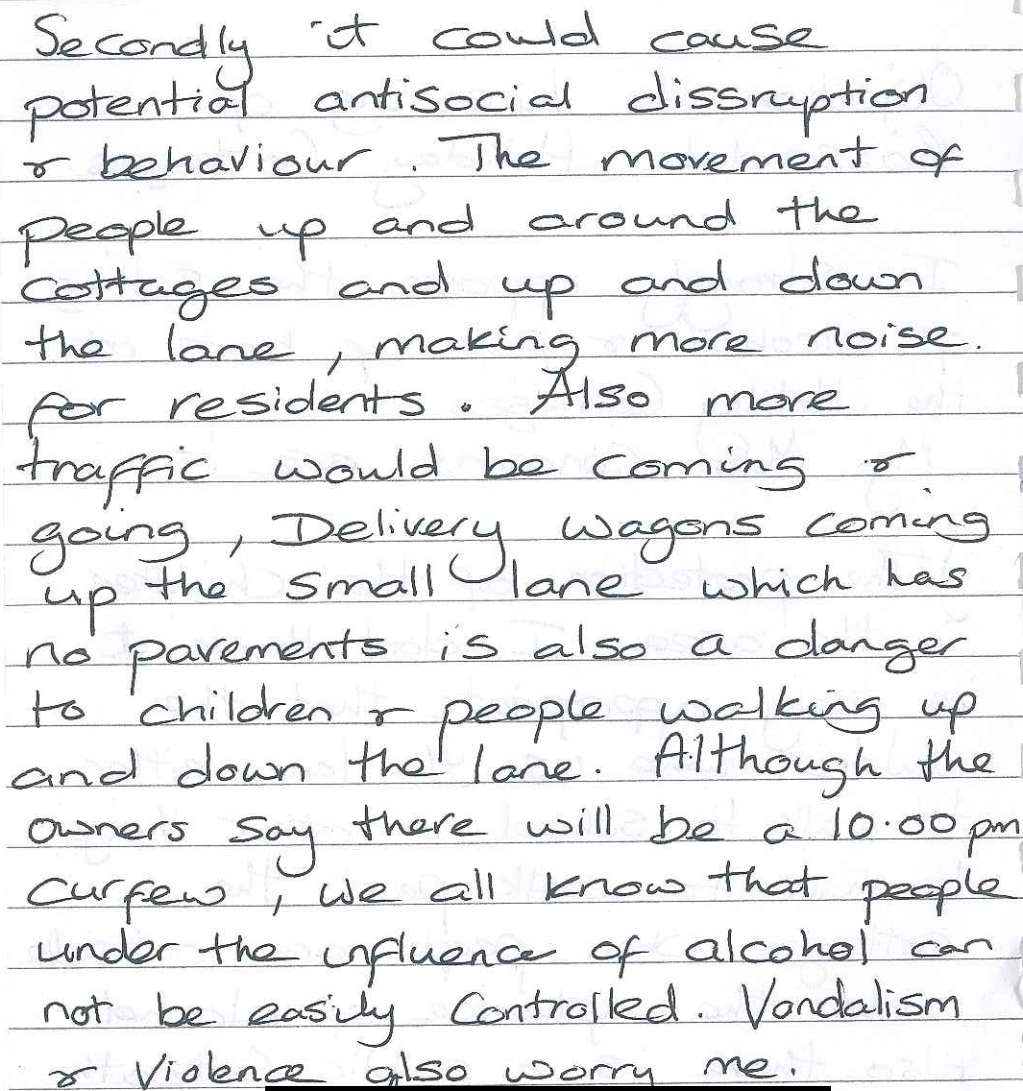 Secondly it could cause
potential antisocial dissruption
& behaviour. The movement of
people up and around the
cottages and up and down
the lane, making more noise.
for residents. Also more
traffic would be coming &
going, Delivery wagons coming
up the small lane which has
no pavements is also a danger
to children & people walking up
and down the lane. Although the
owners say there will be a 10.00pm
curfew, we all know that people
under the influence of alcohol can
not be easily controlled. Vandalism
& Violence also worry me.